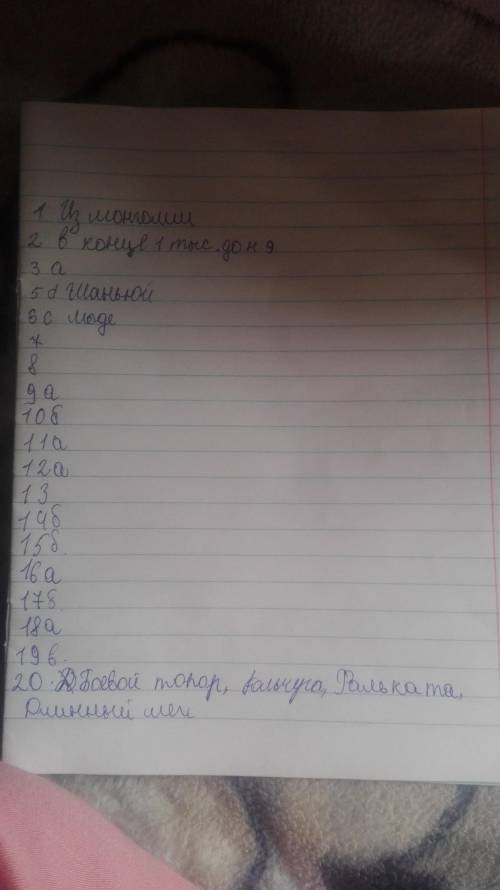 1 Из монголии
2 в конце 1 тыс. до н э
3 а
5 d Шаньюй
6 с Моде
7
8
9 а
10 б
11 а
12 а
13
14 б
15 б
16 а
17 б
18 а
19 в.
20. Боевой топор, кольчуга,
Длинный меч